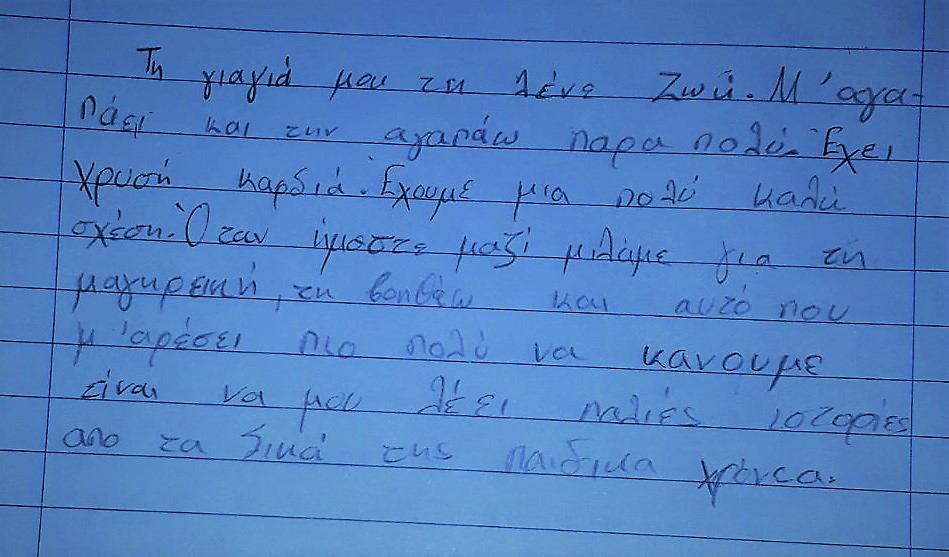 Τη γιαγιά μου τη λένε Ζωή. Μ'αγα-
πάει και την αγαπάω παρα πολύ. Έχει
χρυσή καρδιά. Έχουμε μια πολύ καλή
σχέση. Όταν ήμαστε μαζί μιλάμε για τη
μαγυρεική, τη βοηθάω και αυτό που
μ'αρέσει πιο πολύ να κανουμε
είναι να μου λέει παλιές ιστορίες
απο τα δικά της παιδικα χρόνια.